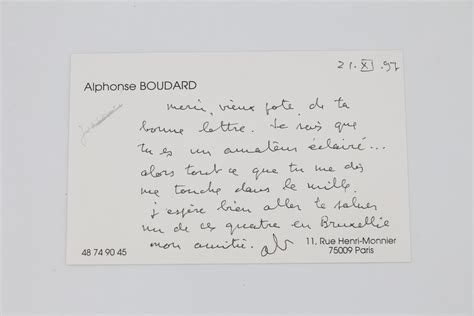 21. XI. 97
Alphonse BOUDARD
merci, vieux pote, de ta
bonne lettre. Je sais que
tu es un amateur éclairé...
alors tout ce que tu me dis
me touche dans le mille.
j'espère bien aller te saluer
un de ces quatre en Bruxellie
mon amitié. alb
48 74 90 45
11, Rue Henri-Monnier
75009 Paris